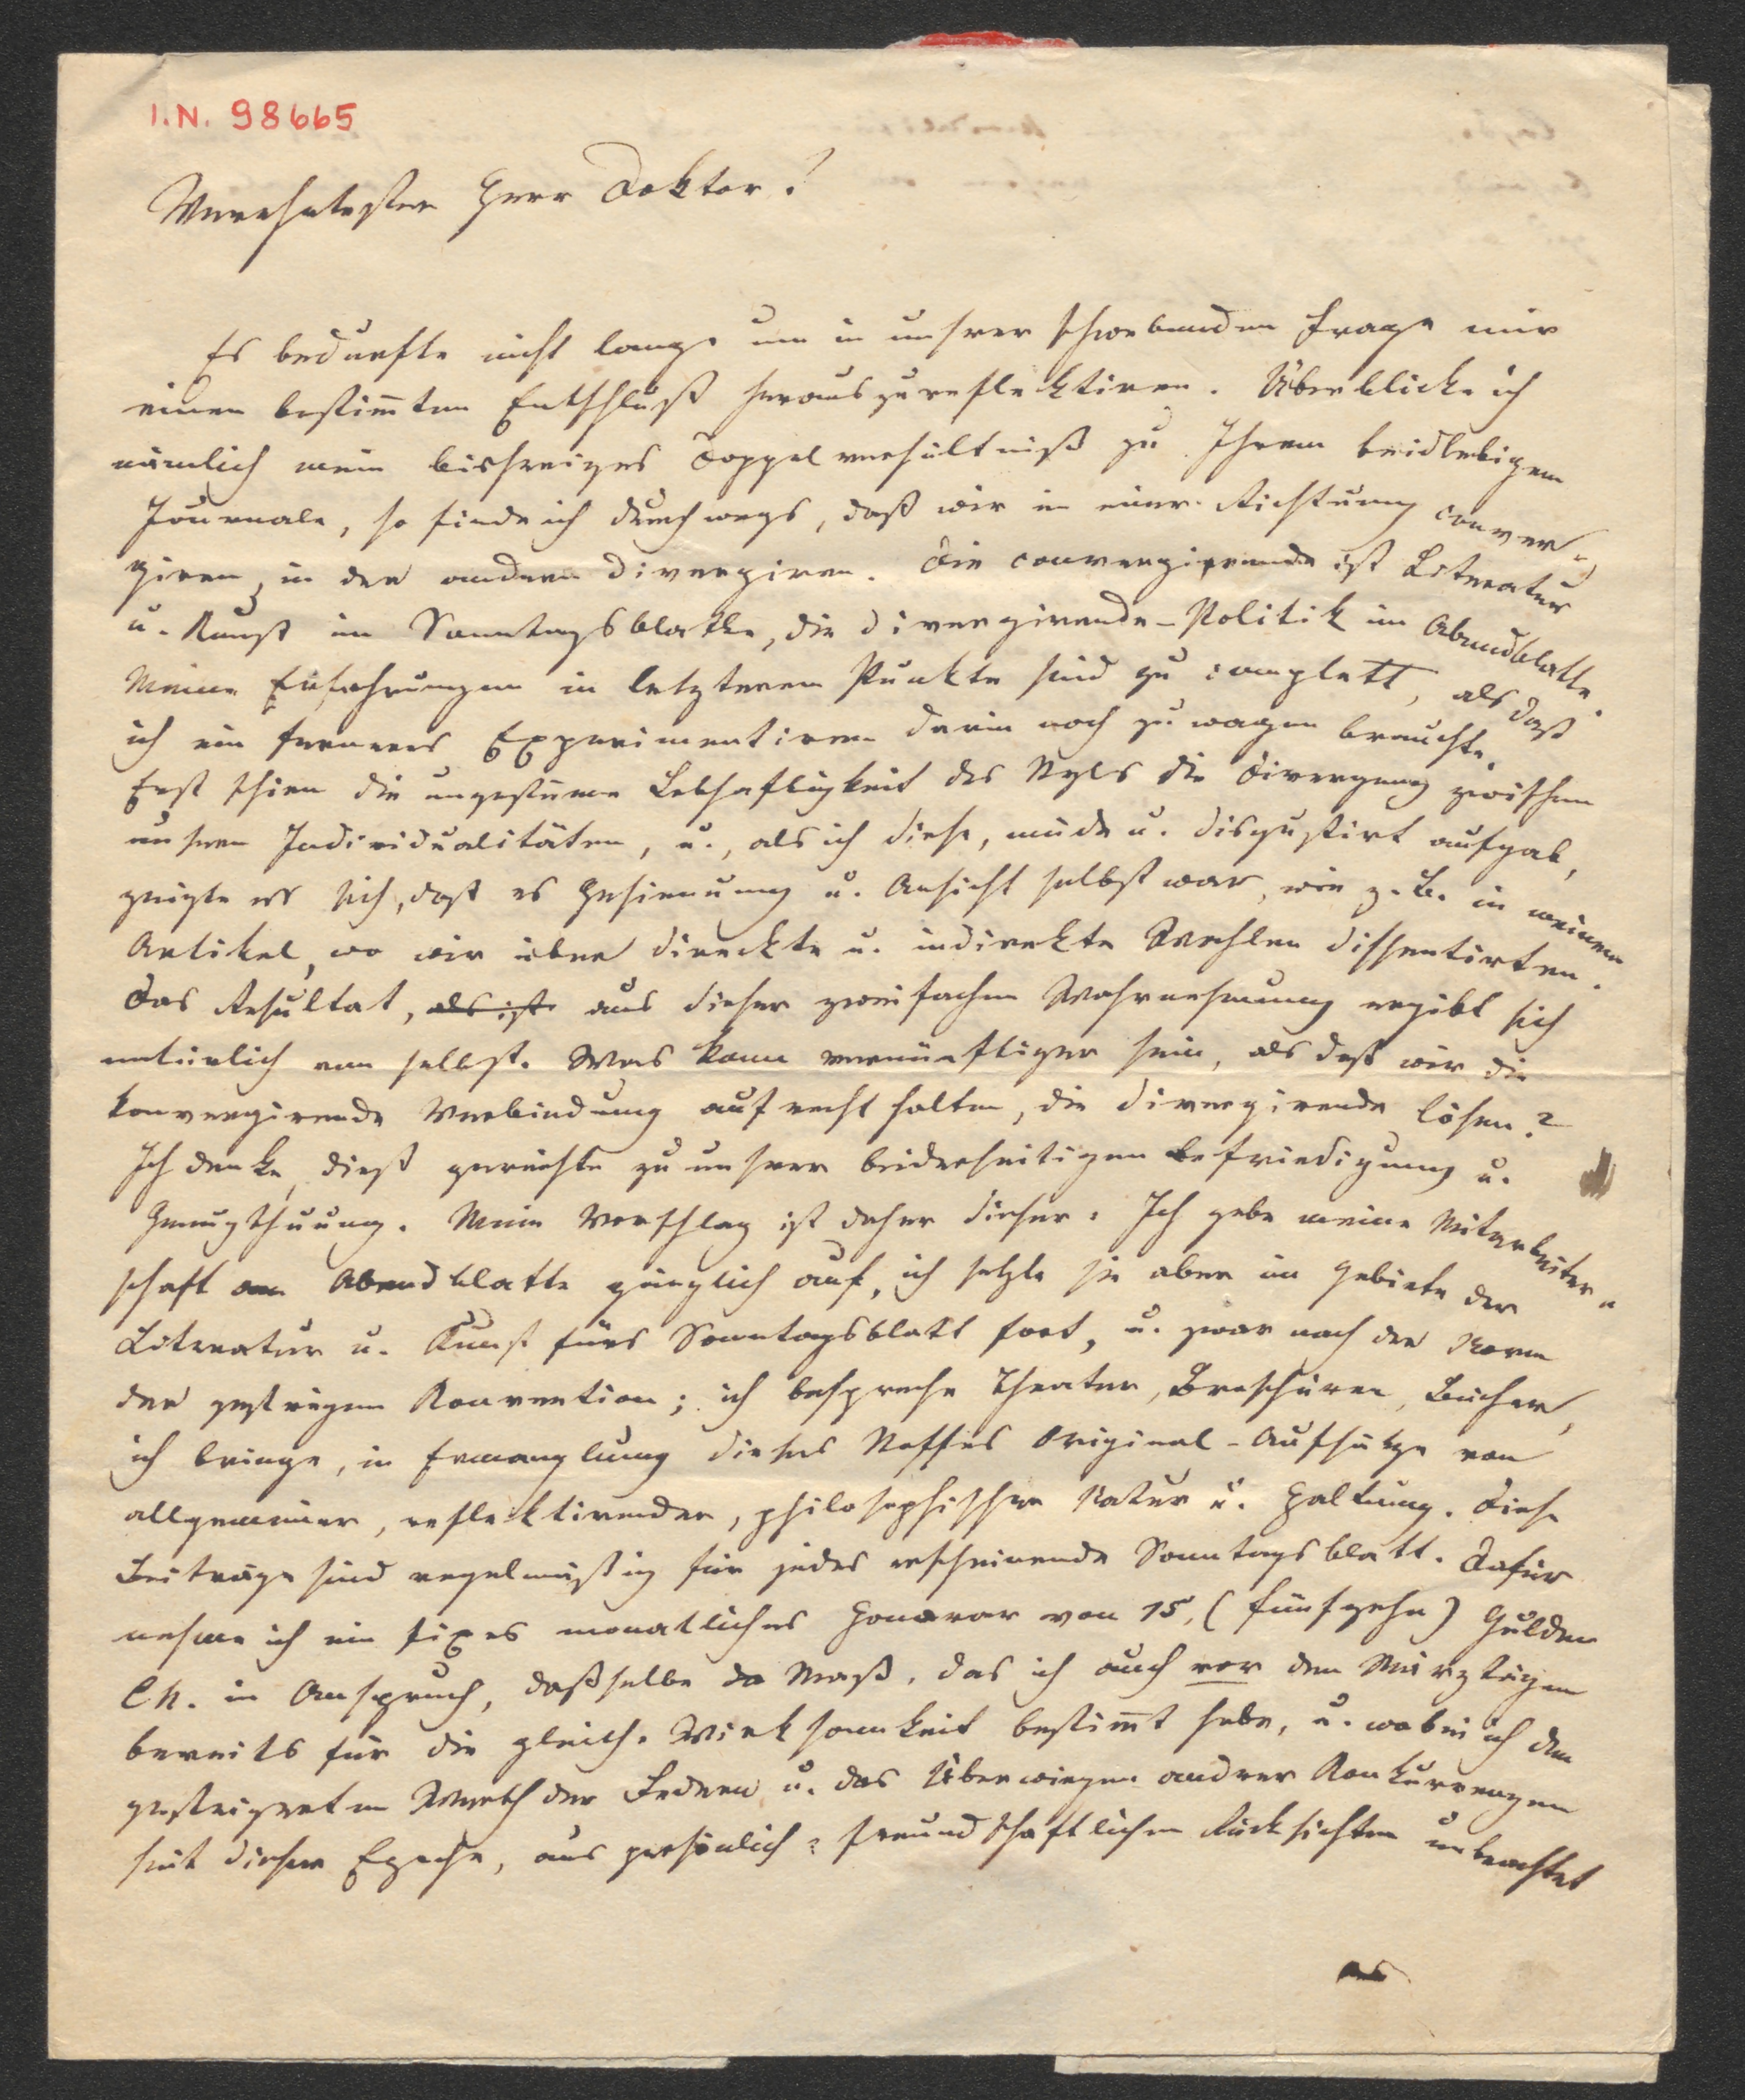 I.N. 98665
Verehrtester Herr Doktor!
Es bedurfte nicht lange um in unsrer schwebenden Frage mir
einen bestim̄ten Entschluß herauszureflektiren. Überblicke ich
nämlich mein bisheriges Doppelverhältniß zu Ihrem beidlebigen
Journale, so finde ich durchwegs, daß wir in einer Richtung conver-
giren, in der andern divergiren. Die convergirende ist Literatur
u. Kunst im Sonntagsblatte, die divergirende – Politik im Abendblatte.
Meine Erfahrungen in letzterem Punkte sind zu complett, als daß
ich ein ferneres Experimentiren darin noch zu wagen brauchte.
Erst schien die ungestüme Lebhaftigkeit des Styls die Divergenz zwischen
unseren Individualitäten, u., als ich diese, müde u. disgustirt aufgab,
zeigte es sich, daß es Gesinnung u. Ansicht selbst war, wie z. B. in meinem
Artikel, wo wir über direckte u. indirekte Wahlen dissentirten.
Das Resultat, als ist aus dieser zweifachen Wahrnehmung ergibt sich
natürlich von selbst. Was kann vernünftiger sein, als daß wir die
konvergirende Verbindung aufrecht halten, die divergirende lösen?
Ich denke, dieß gereichte zu unsrer beiderseitigen Befriedigung u.
Genugthuung. Mein Vorschlag ist daher dieser: Ich gebe meine Mitarbeiter-
schaft am Abendblatte gänzlich auf, ich setzte sie aber im Gebiete der
Literatur u. Kunst fürs Sonntagsblatt fort, u. zwar nach der Norm
der gestrigen Konvention; ich bespreche Theater, Broschüren, Bücher,
ich bringe, in Ermanglung dieses Stoffes Original-Aufsätze von
allgemeiner, reflektirender, philosophischer Natur u. Haltung. Diese
Beiträge sind regelmäßig für jedes erscheinende Sonntagsblatt. Dafür
nehme ich ein fixes monatliches Honorar von 15, (fünfzehn) Gulden
CM. in Anspruch, daßselbe da Maß, das ich auch vor den Märztagen
bereits für die gleiche Wirksamkeit bestim̄t habe, u. wobei ich den
gesteigerten Werth der Federn u. das Überwiegen andrer Konkurrenzen
seit dieser Epoche, aus persönlich-freundschaftlichen Rücksichten unbeachtet